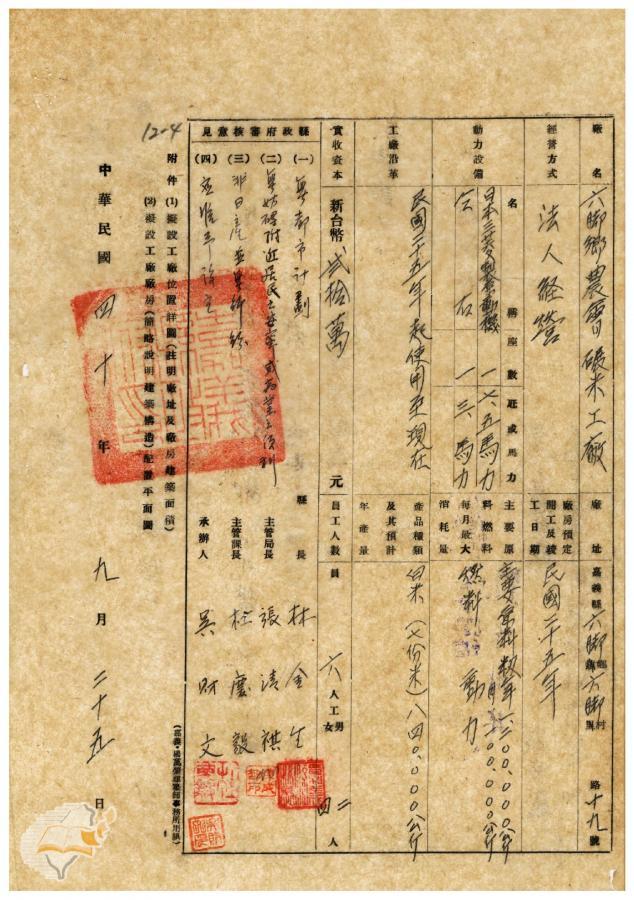 廠名 六腳鄉農會碾米工廠
廠址 嘉義縣六腳鄉鎮六腳村里 路十九號
經營方式 法人經營
廠房預定開工及竣工日期 民國二十五年
動力設備
名稱 座數 旺或馬力
一 七.五馬力
仝右 一 三馬力
主要原料燃料每月最大消耗量
燃料 動力
工廠沿革 民國二十五年起使用至現在
產品種類及其預計年產量 白米(七份米)八四〇.〇〇〇公斤
實收資本 新台幣 貳拾萬 元
員工人數 員 六人 工 男 二 女 四 人
縣政府審核意見
(一) 無都市計劃
(二) 無妨礙附近居民之安寧
(三) 非日產
(四)
縣長 林金生
主管局長 張清祺
主管課長 慶毅
承辦人 吳財文
附件 (1)擬設工廠位置詳圖(註明廠址及廠房建築面積)
(2)擬設工廠廠房(簡略說明建築構造)配置平面圖
中華民國四十年九月二十五日
12-4